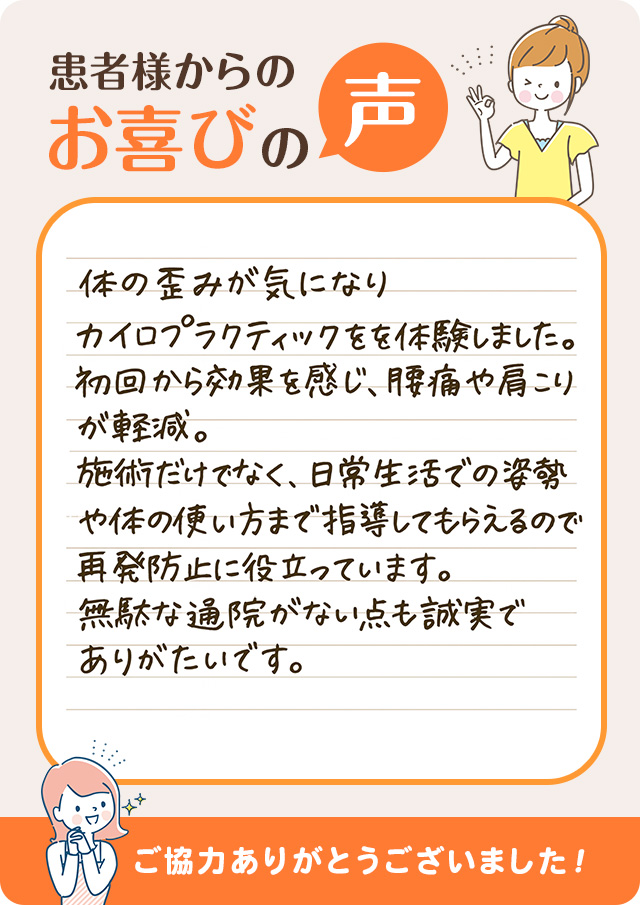 患者様からの
お喜びの声
体の歪みが気になり
カイロプラクティックをを体験しました。
初回から効果を感じ、腰痛や肩こり
が軽減。
施術だけでなく、日常生活での姿勢
や体の使い方まで指導してもらえるので
再発防止に役立っています。
無駄な通院がない点も誠実で
ありがたいです。
ご協力ありがとうございました！